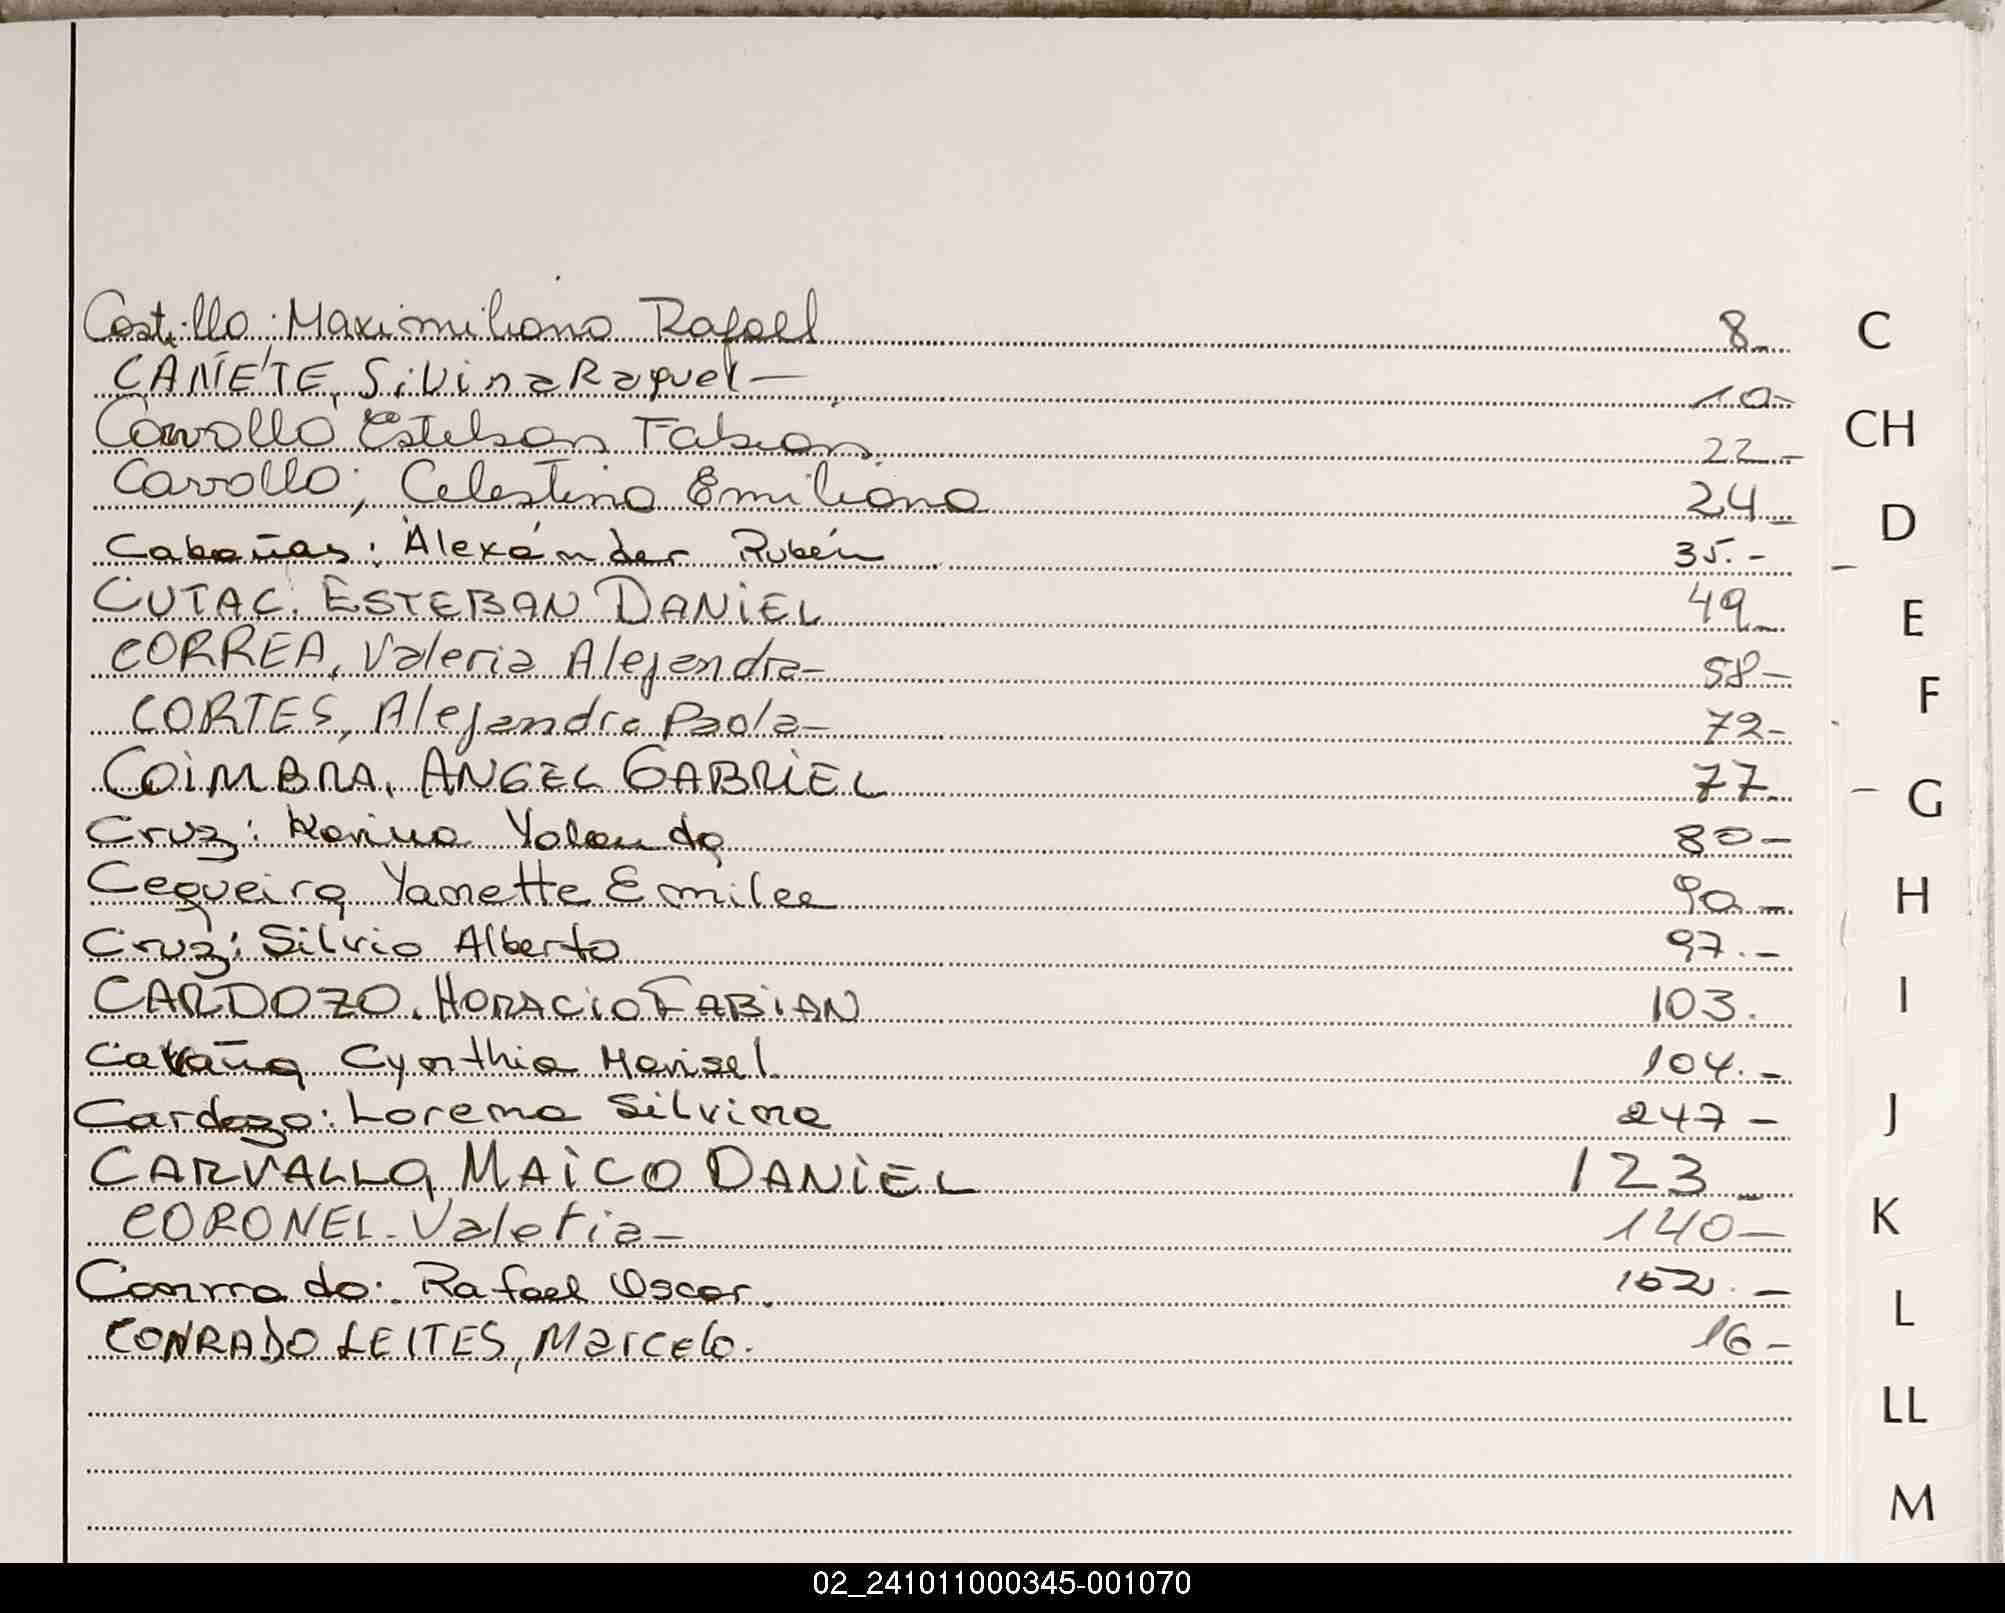 Castillo: Maximiliano Rafael 8- C
CAÑETE, Silvina Raquel— 10-
Carvallo Esteban Fabian. 22- CH
Carvallo; Celestino Emiliano 24-
Cabañas: Alexánder Rubén 35.- D
CUTAC. ESTEBAN DANIEL 49- E
CORREA, Valeria Alejandra- 58-
CORTES, Alejandra Paola- 72- F
COIMBRA, ANGEL GABRIEL 77- G
Cruz: Karina Yolanda 80-
Cequeira Yanette Emilce 90- H
Cruz: Silvio Alberto 97.-
CARDOZO. HORACIO FABIAN 103. I
Cynthia Marisel 104.-
Cardozo: Lorena Silvina 247- J
CARVALLO, MAICO DANIEL 123-
CORONEL-Valeria- 140- K
Rafael Oscar. 152.- L
CONRADO LEITES, Marcelo. 16-
LL
M
02_241011000345-001070